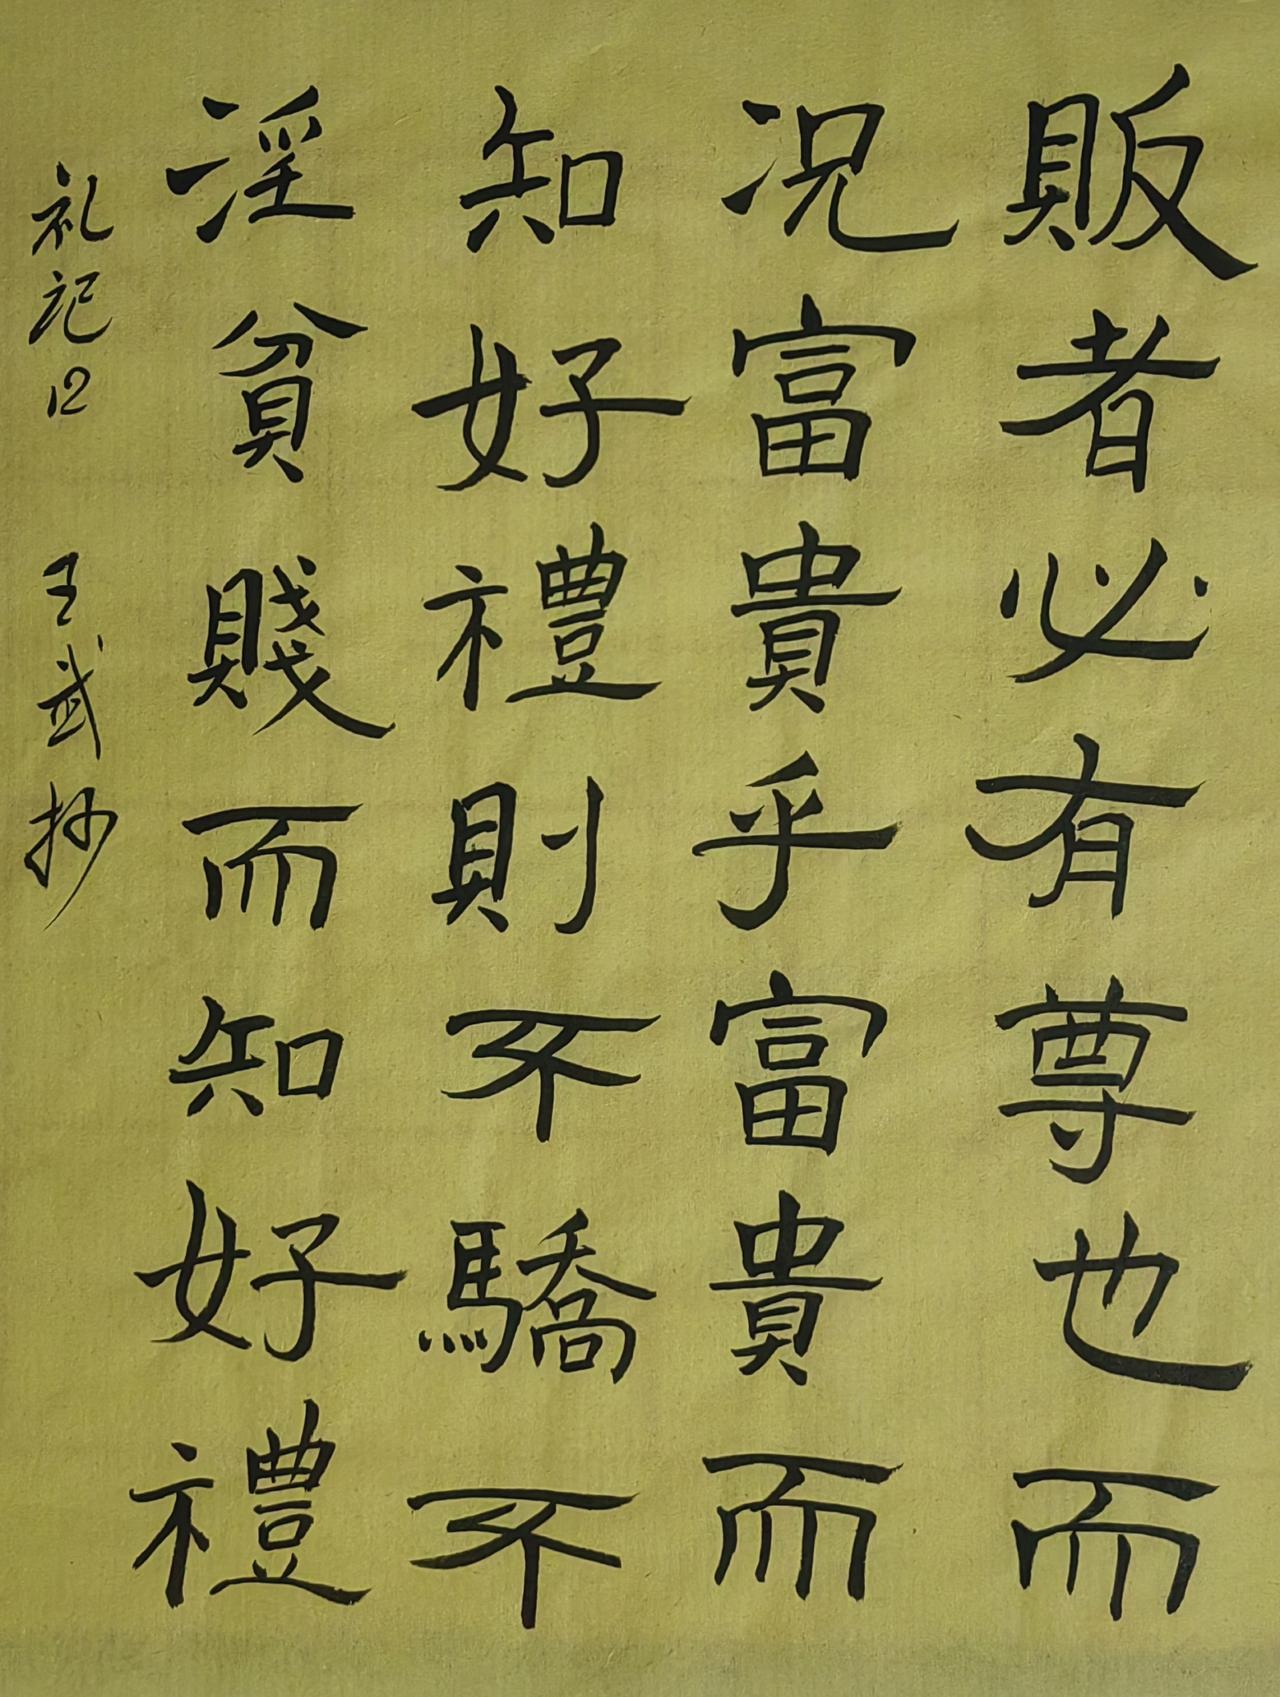 販者必有尊也而
况富貴乎富貴而
知好禮則不驕不
淫貧賤而知好禮
礼记12 王武抄